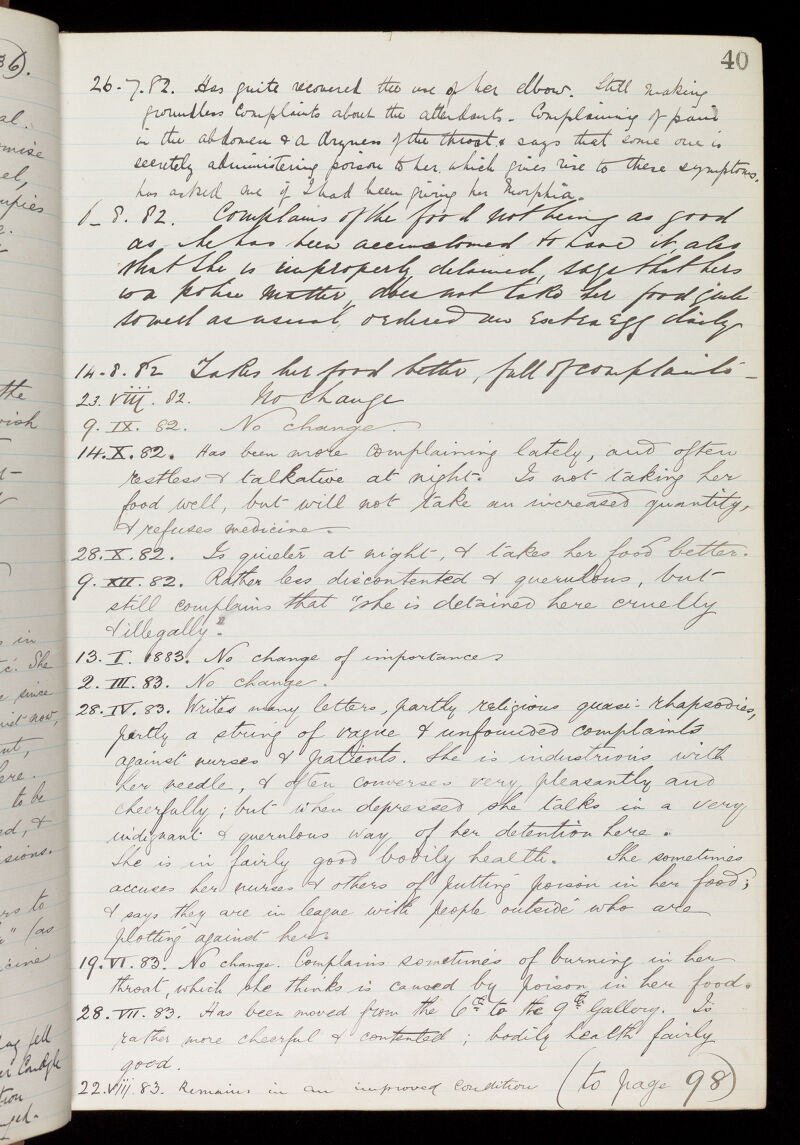 36).
40
26-7.82. Has quite recovered the use of her elbow. Still making
groundless complaints about the attendants. Complaining of pain
in the abdomen & a dryness of the throat & says that some one is
secretely administering poison to her which gives rise to these symptoms.
has asked me if I had been giving her Morphia.
8. 82. Complains of the food not being as good
as she has been accustomed to have it, also
that She is improperly detained, says that hers
is a police matter, does not take her food quite
so well as usual, ordered an Extra Egg daily
14.8.82 Takes her food better, full of complaints -
23.viii.82. No change
9.IX.82. No change.
14.X.82. Has been more complaining lately, and often
restless & talkative at night. Is not taking her
food well, but will not take an increased quantity,
& refuses medicine.
28.X.82. Is quieter at night, & takes her food better.
9.XII.82. Rather less discontented & querulous, but
still complains that "she is detained here cruelly
& illegally."
13.I.1883. No change of importance
2.III.83. No change.
28.IV.83. Writes many letters, partly religious quasi-rhapsodies,
partly a string of vague & unfounded complaints
against nurses & patients. She is industrious with
her needle, & often converses very pleasantly and
cheerfully; but when depressed she talks in a very
indignant & querulous way of her detention here.
She is in fairly good bodily health. She sometimes
accuses her nurses & others of putting poison in her food;
& says they are in league with people outside who are
plotting against her.
19.VI.83. No change. Complains sometimes of burning in her
throat, which she thinks is caused by poison in her food.
28.VII.83. Has been moved from the 6th to the 9th Gallery. Is
rather more cheerful & contented; bodily health fairly
good.
22.viii.83. Remains in an improved condition (to page 98)